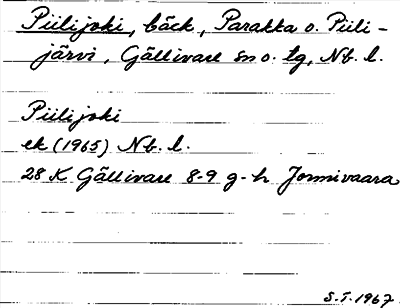 Piilijoki, bäck, Parakka o. Piili-
järvi, Gällivare sn o. tg, Nb. l.
Piilijoki
ek (1965) Nb. l.
28 K Gällivare 8-9 g-h Jormivaara
S.T. 1967